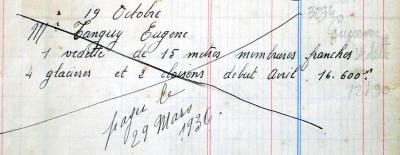 19 Octobre
Mr Tanguy Eugene
1 vedette de 15 metres membrures franches
4 glacieres et 2 cloisons debut Avril 16.600
payé le
29 Mars
1936.